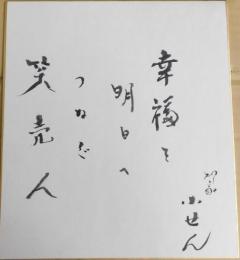 幸福を
明日へ
つなぐ
笑売人
小せん